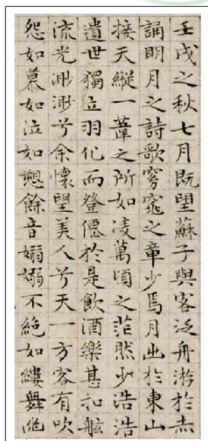 壬戌之秋七月既望蘇子與客泛舟游於赤
誦明月之詩歌窈窕之章少焉月出於東山
接天縱一葦之所如凌萬頃之茫然浩浩
遺世獨立羽化而登僊於是飲酒樂甚扣舷
流光渺渺兮余懷望美人兮天一方客有吹
怨如慕如泣如愬餘音嫋嫋不絕如縷舞